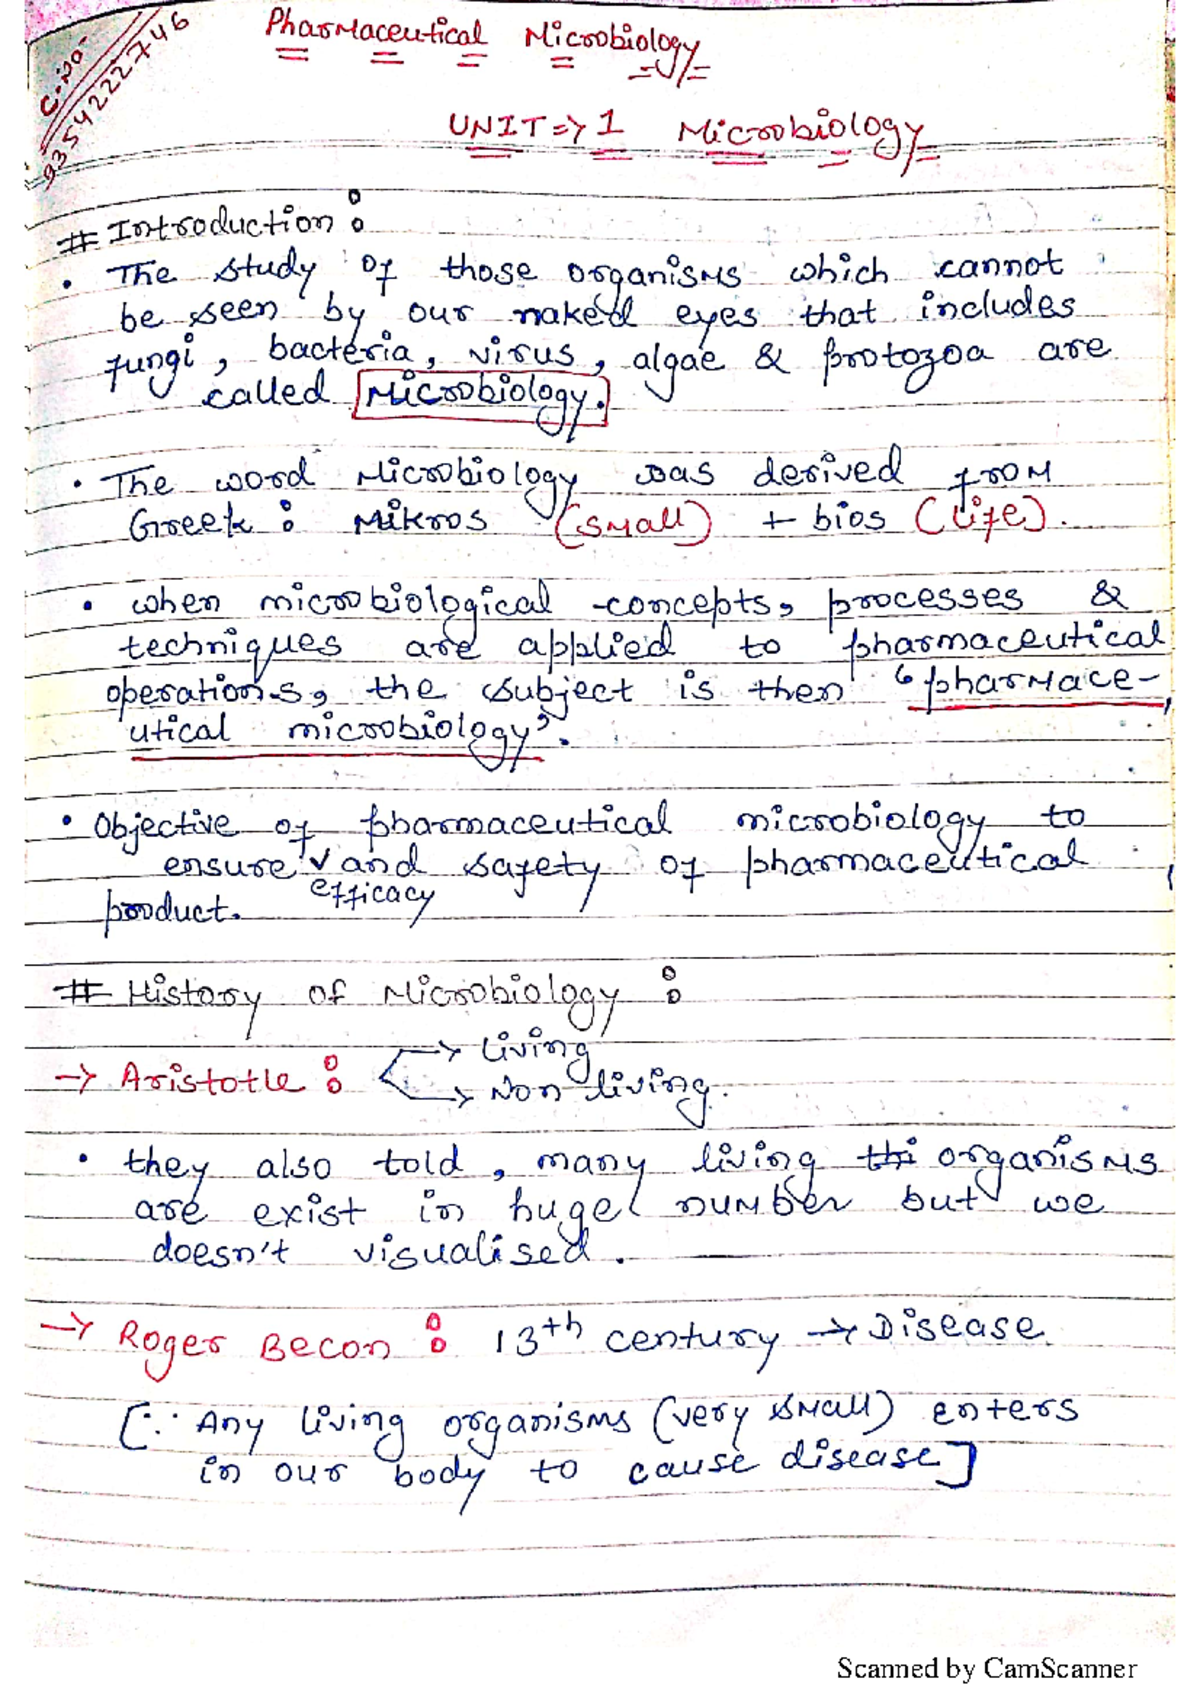 C.No-
9354222746
Pharmaceutical Microbiology
UNIT => 1 Microbiology
# Introduction :
• The study of those organisms which cannot
be seen by our naked eyes that includes
fungi, bacteria, virus, algae & protozoa are
called Microbiology.
• The word Microbiology was derived from
Greek : Mikros (small) + bios (life).
• when microbiological concepts, processes &
techniques are applied to pharmaceutical
operations, the subject is then 'pharmace-
utical microbiology'.
• Objective of pharmaceutical microbiology to
ensure efficacy and safety of pharmaceutical
product.
# History of Microbiology :
→ Aristotle : → Living
→ Non living.
• they also told, many living thi organisms
are exist in huge number but we
doesn't visualised.
→ Roger Becon : 13th century → Disease.
[∵ Any living organisms (very small) enters
in our body to cause disease]
Scanned by CamScanner